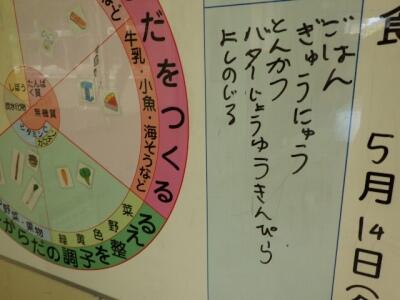 食
5月14日(
ごはん
ぎゅうにゅう
とんかつ
バターじょうゆうきんぴら
よしのじる
だをつくる
など
牛乳・小魚・海そうなど
たんぱく質
しぼう
炭水化物
無機質
ビタミンC
カロテン
緑黄色野菜
野菜・果物
からだの調子を整える